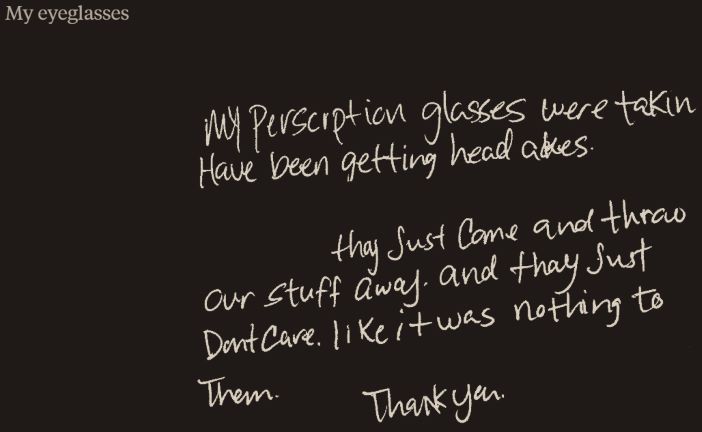 My eyeglasses
My Perscrption glasses were takin
Have been getting head akes.
thay Just Come and thraw
our stuff away. and thay Just
Dont Care. like it was nothing to
Them. Thank you.